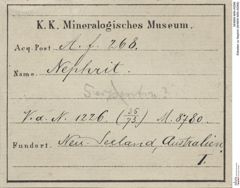 K. K. Mineralogisches Museum.
Acq. Post A. f. 268.
Name. Nephrit.
Serpentin?
V. d. N. 1226. M. 8780.
Fundort. Neu Seeland, Australien
1.